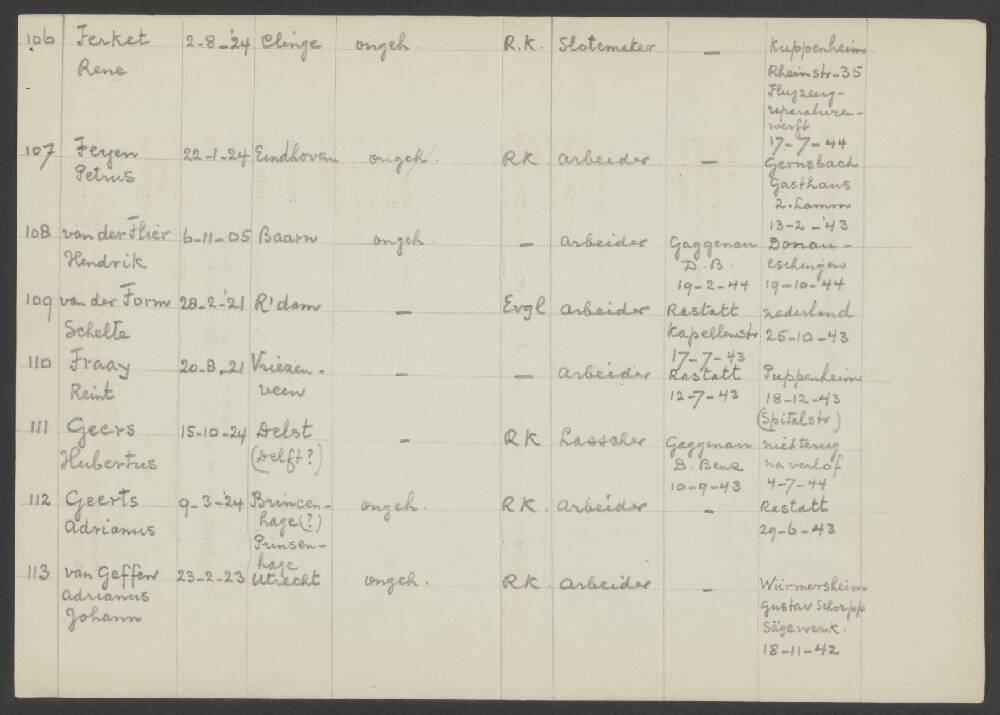 106 Ferket 2-8-'24 Clinge ongeh. R.K. Slotemaker — Kuppenheim
Rene Rheinstr-35
Flugzeug-
reparaturen-
werft
17-7-44
107 Feyen 22-1-24 Eindhoven ongeh. RK arbeider — Gernsbach
Petrus Gasthaus
z. Lamm
13-2-'43
108 van der Flier 6-11-05 Baarn ongeh. — arbeider Gaggenau Donau-
Hendrik D.B. eschingen
19-2-44 19-10-44
109 van der Form 28-2-'21 R'dam — Evgl arbeider Rastatt nederland
Schelte Kapellenstr 25-10-43
17-7-43
110 Fraay 20-8-21 Vriezen- — — arbeider Rastatt Puppenheim
Reint veen 12-7-43 18-12-43
(Spitalstr)
111 Geers 15-10-24 Delst — RK Lasscher Gaggenau niet terug
Hubertus (Delft?) D. Benz na verlof
10-9-43 4-7-44
112 Geerts 9-3-'24 Brincen- ongeh. RK. arbeider — Rastatt
Adrianus hage(?) 29-6-43
Prinsen-
hage
113 van Geffen 23-2-23 Utrecht ongeh. RK. arbeider — Würmersheim
Adrianus Gustav Schorpp
Johann Sägewerk.
18-11-42